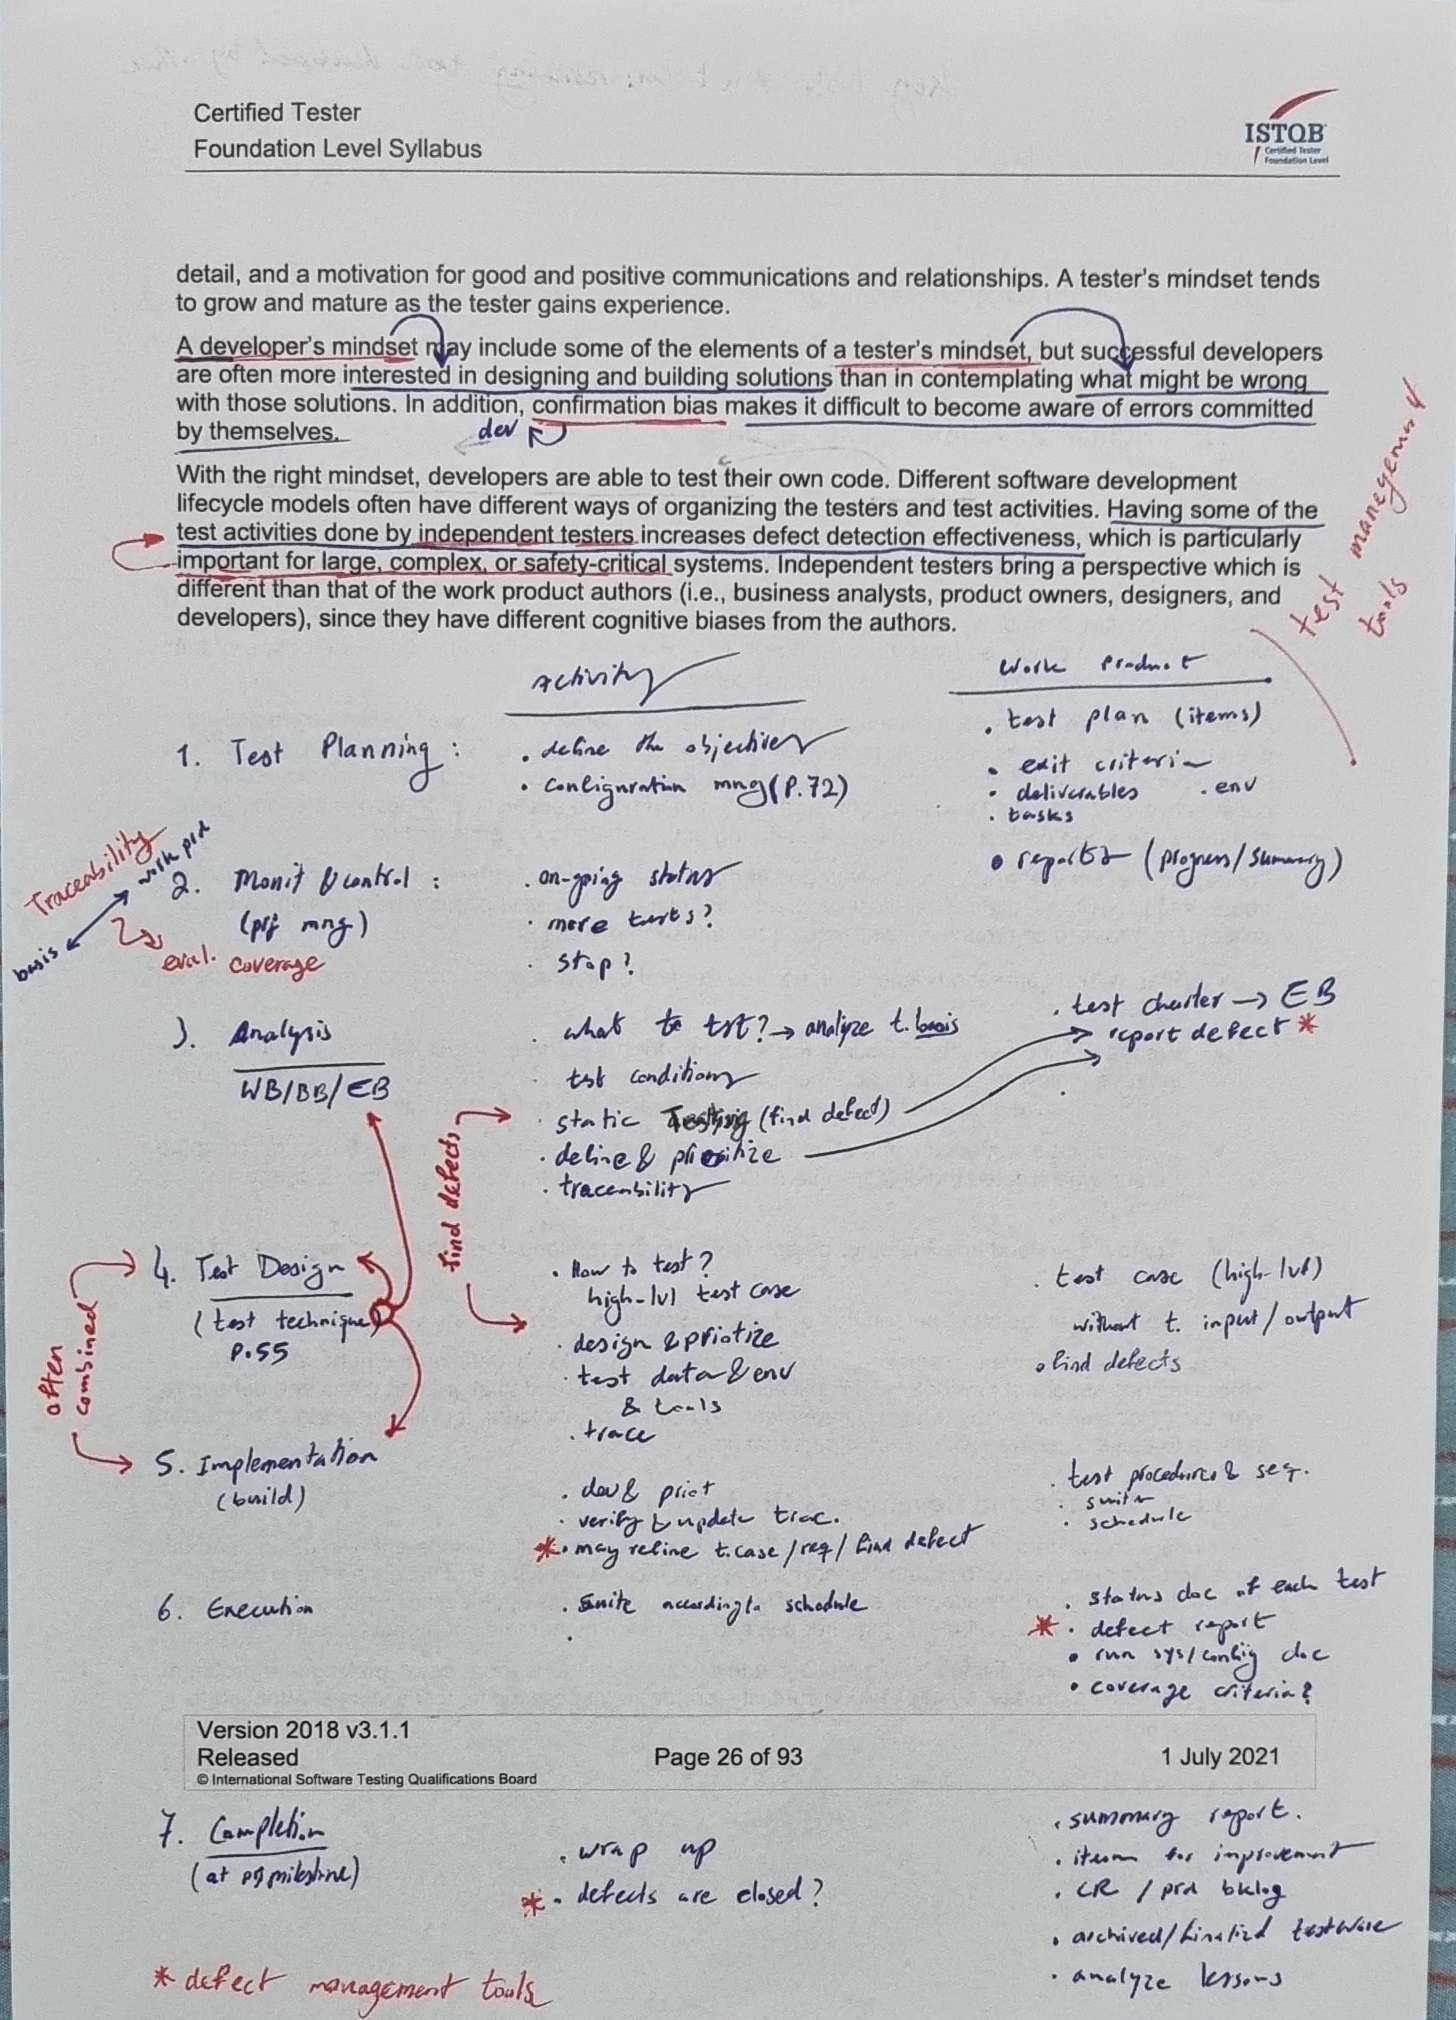 Certified Tester
Foundation Level Syllabus
ISTQB
Certified Tester
Foundation Level
detail, and a motivation for good and positive communications and relationships. A tester's mindset tends
to grow and mature as the tester gains experience.
A developer's mindset may include some of the elements of a tester's mindset, but successful developers
are often more interested in designing and building solutions than in contemplating what might be wrong
with those solutions. In addition, confirmation bias makes it difficult to become aware of errors committed
by themselves.
dev
With the right mindset, developers are able to test their own code. Different software development
lifecycle models often have different ways of organizing the testers and test activities. Having some of the
test activities done by independent testers increases defect detection effectiveness, which is particularly
important for large, complex, or safety-critical systems. Independent testers bring a perspective which is
different than that of the work product authors (i.e., business analysts, product owners, designers, and
developers), since they have different cognitive biases from the authors.
test management
tools
Activity
Work Product
1. Test Planning :
. define the objectives
. configuration mng (P.72)
. test plan (items)
. exit criteria
. deliverables . env
. tasks
Traceability
work prd
basis
eval. coverage
2. Monit & control :
(prj mng)
. on-going status
. more tests?
. stop?
. reports (progress/summary)
3. Analysis
WB/BB/EB
. what to tst? → analyze t. basis
. test conditions
. static Testing (find defect)
. define & prioritize
. traceability
. test charter → EB
report defect *
find defects
often
combined
4. Test Design
(test technique)
P.55
. How to test?
high-lvl test case
. design & priotize
. test data & env
& tools
. trace
. test case (high-lvl)
without t. input/output
. find defects
5. Implementation
(build)
. dev & priot
. verify & update trac.
* . may refine t.case/req/find defect
. test procedures & seq.
. suite
. schedule
6. Execution
. suite according to schedule
. status doc of each test
* . defect report
. run sys/config doc
. coverage criteria?
Version 2018 v3.1.1
Released
© International Software Testing Qualifications Board
Page 26 of 93
1 July 2021
7. Completion
(at prj milestone)
. wrap up
* . defects are closed?
. summary report.
. items for improvement
. CR / prd bklog
. archived/finalized testware
. analyze lessons
* defect management tools